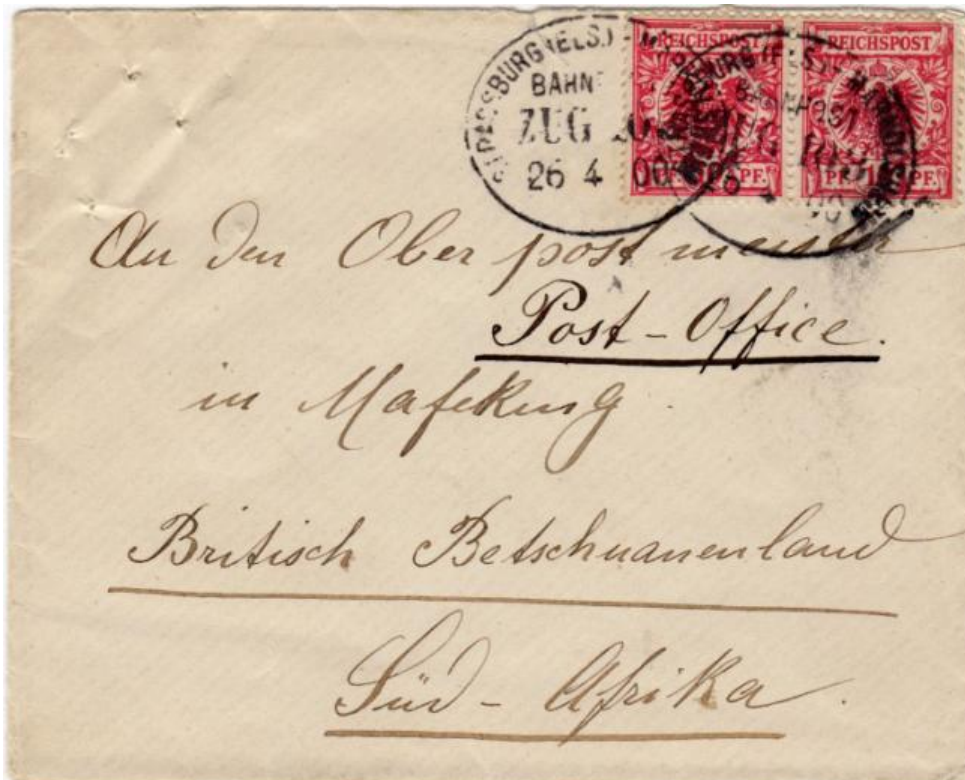 STRASSBURG (ELS.) -
BAHN
ZUG
26 4 00
REICHSPOST
REICHSPOST
PF. PF.
PF. 10 PF.
An den Oberpostmeister
Post-Office.
in Mafeking.
Britisch Betschuanenland
Süd-Afrika.